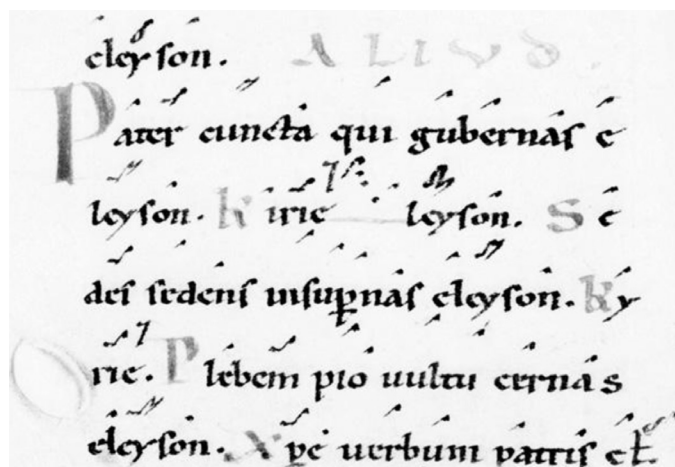 eleyson. ALIVD.
Pater cuncta qui gubernas e
leyson. kirie leyson. S e
des sedens insup̱nas eleyson. ky
rie. Plebem pio uultu cernas
eleyson. Xp̄e uerbum patris eł